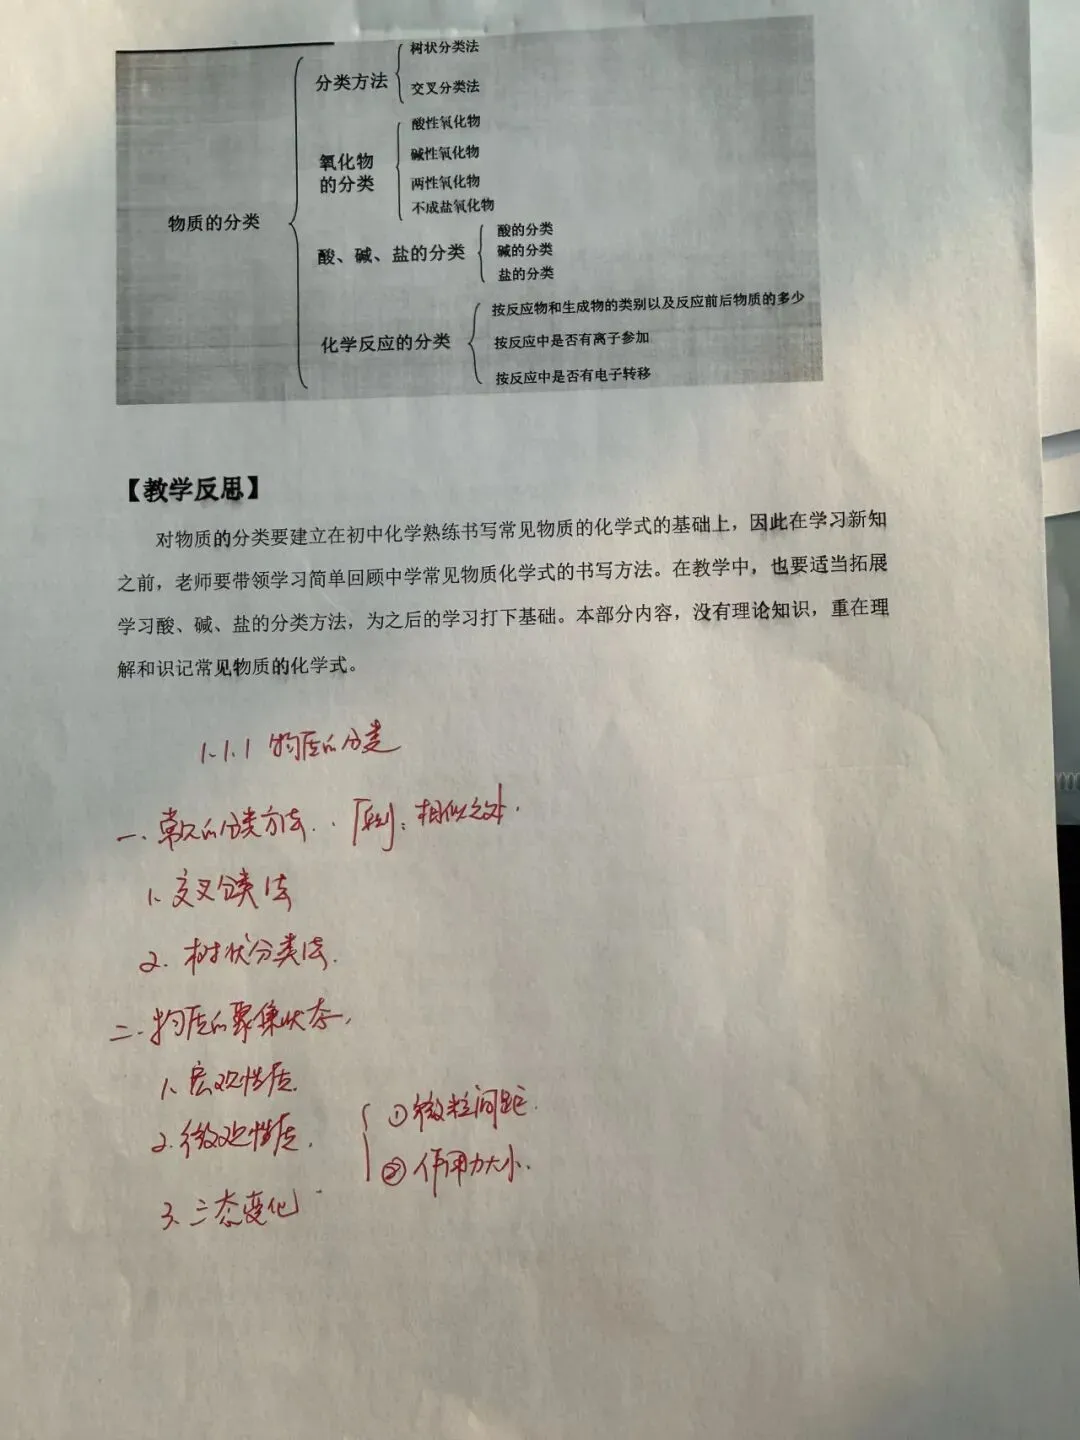 树状分类法
分类方法
交叉分类法
酸性氧化物
氧化物
碱性氧化物
的分类
两性氧化物
不成盐氧化物
物质的分类
酸的分类
酸、碱、盐的分类
碱的分类
盐的分类
按反应物和生成物的类别以及反应前后物质的多少
化学反应的分类
按反应中是否有离子参加
按反应中是否有电子转移
【教学反思】
对物质的分类要建立在初中化学熟练书写常见物质的化学式的基础上，因此在学习新知
之前，老师要带领学习简单回顾中学常见物质化学式的书写方法。在教学中，也要适当拓展
学习酸、碱、盐的分类方法，为之后的学习打下基础。本部分内容，没有理论知识，重在理
解和识记常见物质的化学式。
1.1.1 物质的分类
一、常见的分类方法.. 原则：相似之处.
1. 交叉分类法
2. 树状分类法.
二、物质的聚集状态,
1. 宏观性质.
2. 微观性质. ①微粒间距.
②作用力大小.
3. 三态变化